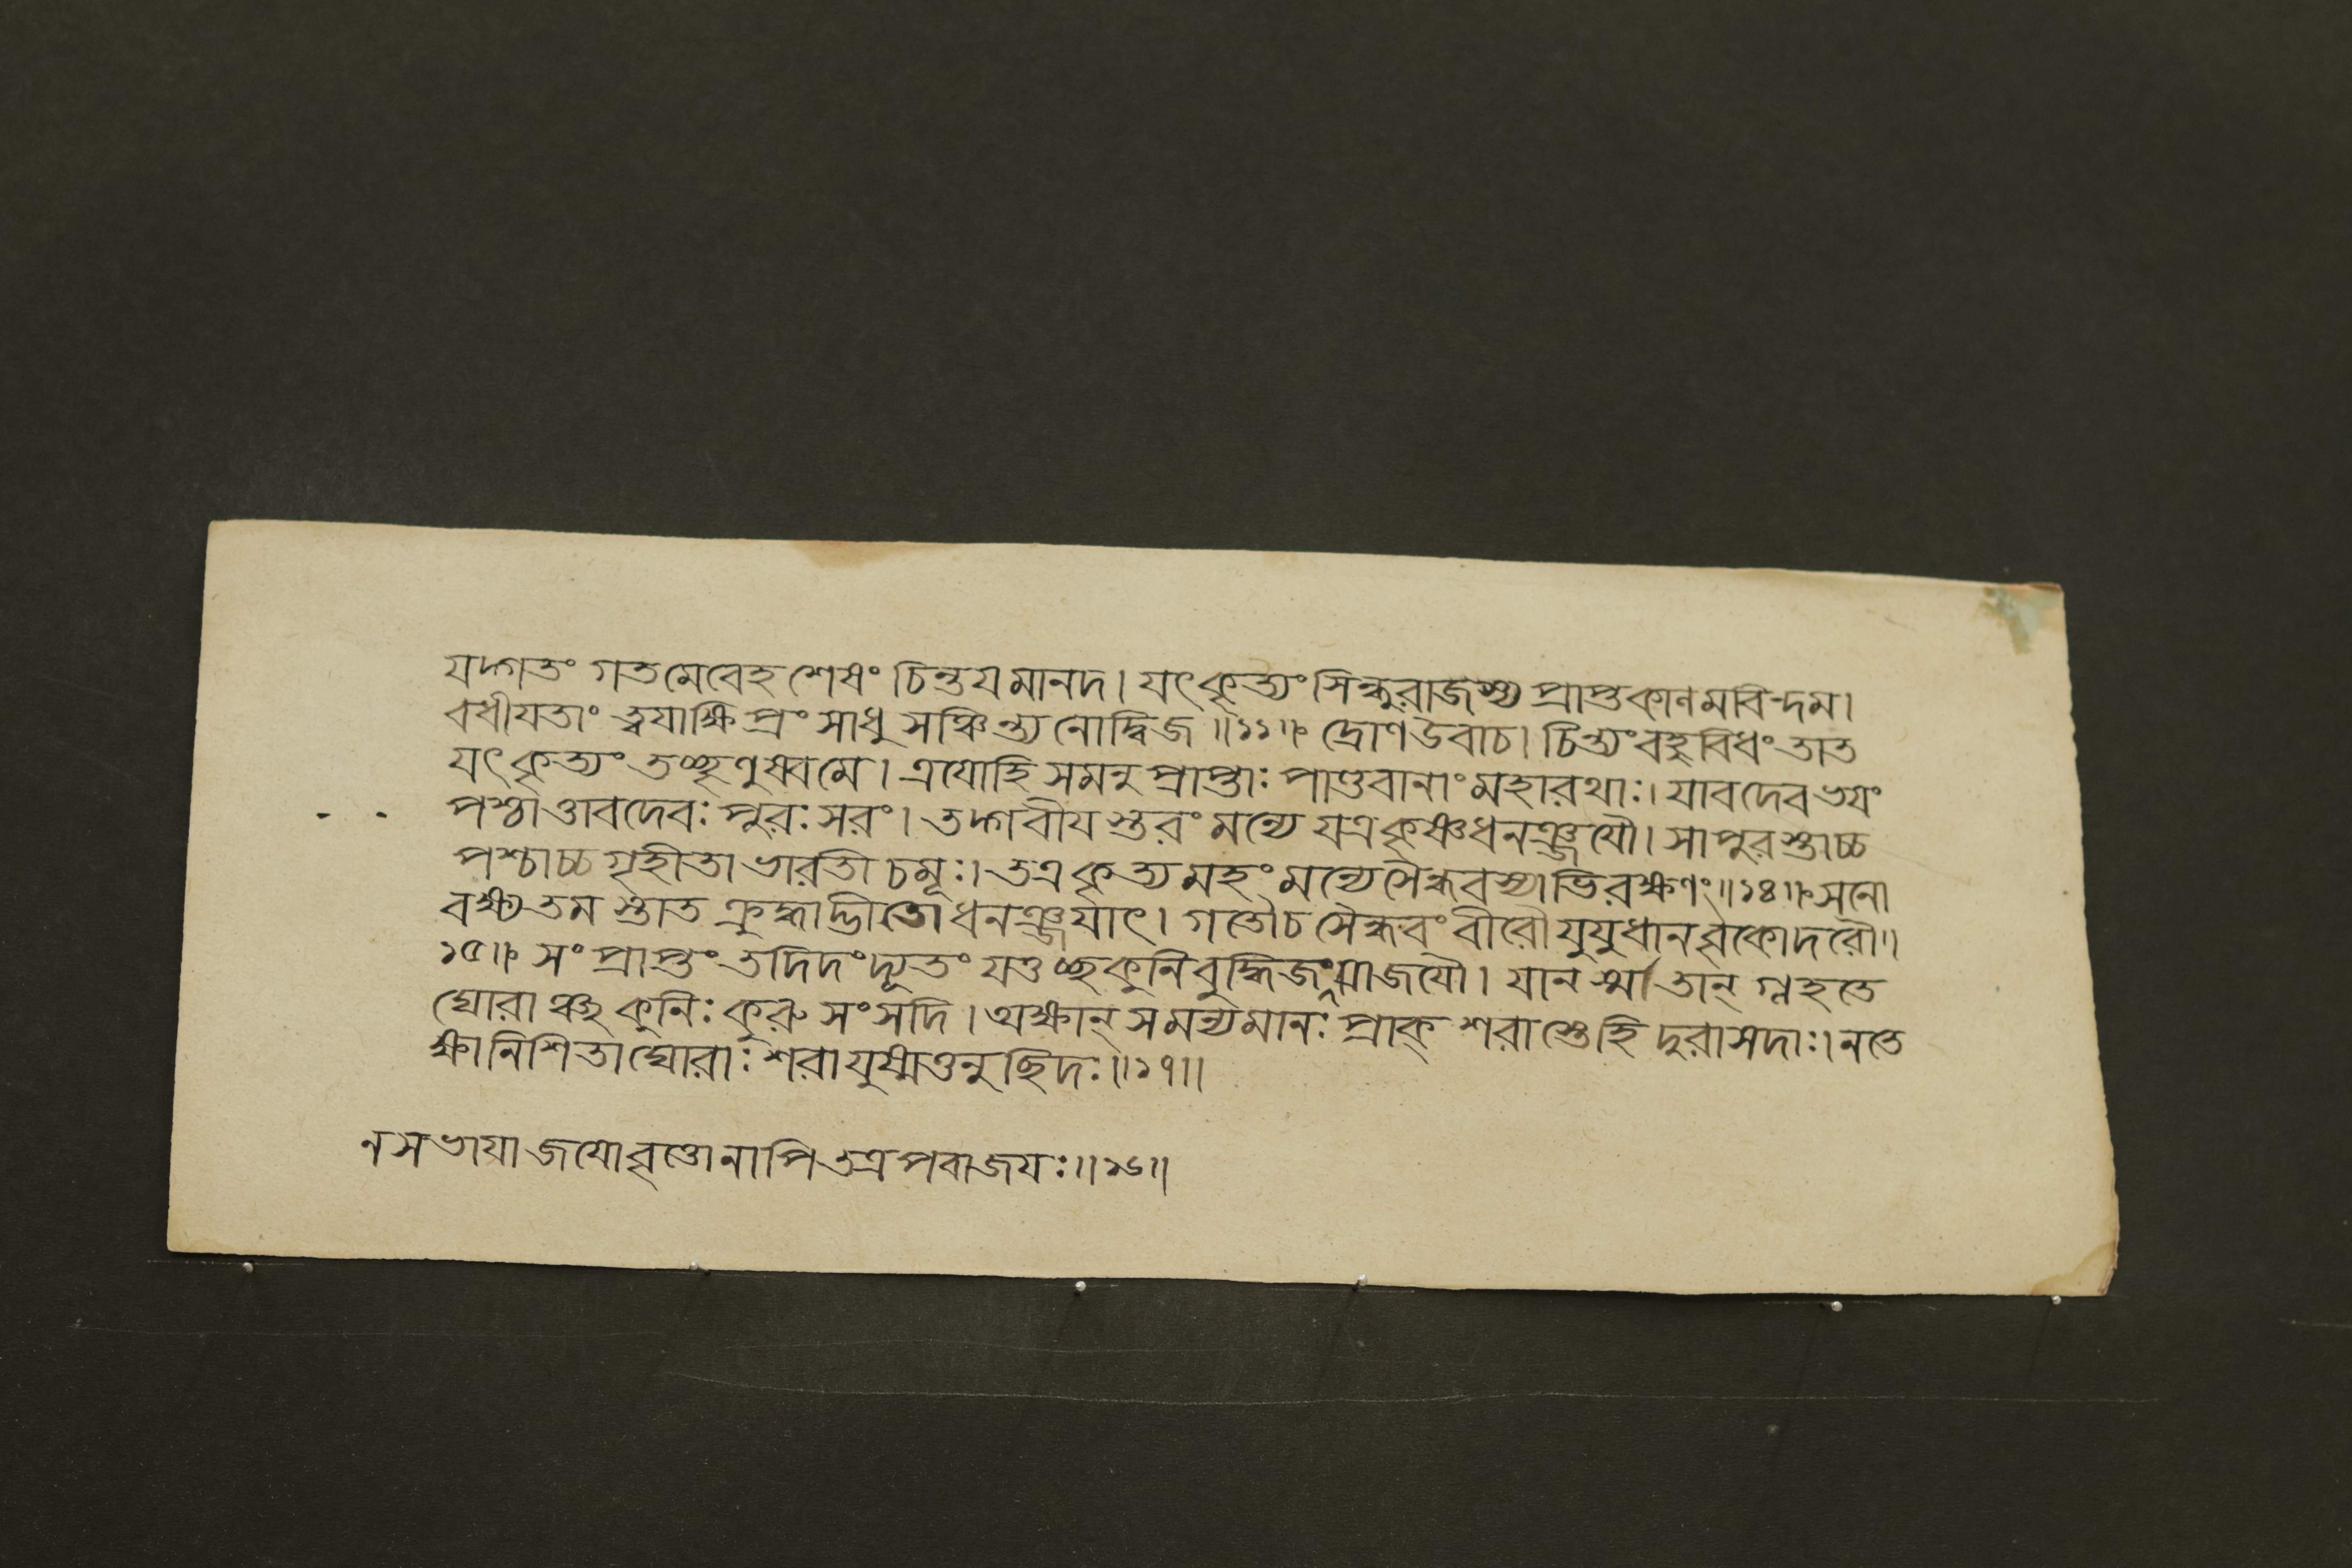 যদ্গতং গতমেবেহ শেষং চিন্তয মানদ। যৎকৃত্যং সিন্ধুরাজস্য প্রাপ্তকালমবিন্দম।
বধীযতাং ত্বযাক্ষিপ্রং সাধু সঞ্চিন্ত্য নোদ্বিজ॥১১॥ দ্রোণ উবাচ। চিন্ত্যং বহুবিধং তাত
যৎকৃত্যং তচ্ছৃণুষ্বমে। এযোহি সমনুপ্রাপ্তাঃ পাণ্ডবানাং মহারথাঃ। যাবদেব ভযং
পশ্চাত্তাবদেবঃ পুরঃসরং। তদ্গরীযস্তরং মন্যে যত্রকৃষ্ণধনঞ্জযৌ। সাপুরস্তাচ্চ
পশ্চাচ্চ গৃহীতা ভারতী চমূঃ। তত্রকৃত্যমহং মন্যে সৈন্ধবস্যাভিরক্ষণং॥১৪॥ সনো
বক্ষ্যতমস্তাত ক্রুদ্ধাদ্ভীতো ধনঞ্জযাৎ। গতৌচ সৈন্ধবং বীরৌ যুযুধানবৃকোদরৌ॥
১৫॥ সংপ্রাপ্তং তদিদং দ্যূতং যত্তচ্ছকুনিবুদ্ধিজং। যানস্মাতান্ গ্লহতে
ঘোরাঞ্ছকুনিঃ কুরুসংসদি। অক্ষান্ সমন্যমানঃ প্রাক্ শরাস্তেহি দুরাসদাঃ। নতে
ক্ষানিশিতাঘোরাঃ শরাযুষ্মত্তনুছিদঃ॥১৭॥
নসভাযাজযোবৃত্তোনাপি তত্রপরাজযঃ॥১৬॥